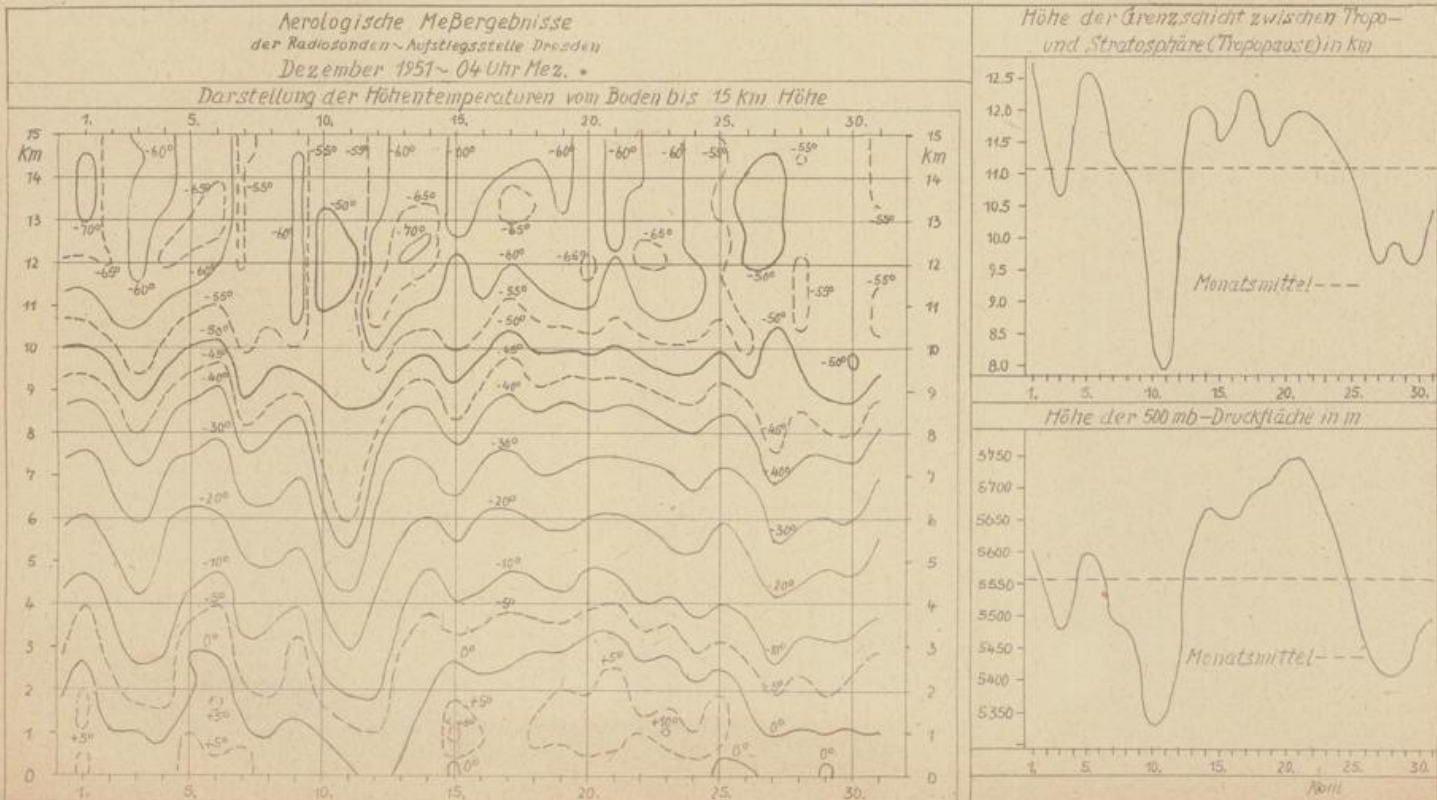 Aerologische Meßergebnisse
der Radiosonden~Aufstiegsstelle Dresden
Dezember 1951~04 Uhr Mez.
Darstellung der Höhentemperaturen vom Boden bis 15 km Höhe
1. 5. 10. 15. 20. 25. 30.
15
Km
14
13
12
11
10
9
8
7
6
5
4
3
2
1
0
15
km
14
13
12
11
10
9
8
7
6
5
4
3
2
1
0
-60° -55° -55° -60° -60° -60° -60° -60° -55° -55°
-65° -55° -65° -65°
-50°
-70° -60° -70° -65° -55°
-65° -60° -60° -60° -65° -50°
-55° -55° -55° -55°
-50° -50° -50°
-45° -45° -50°
-40° -40°
-30° -45°
-30° -40°
-20° -20°
-30°
-10° -10° -20°
-5° -5°
0° 0° -10°
+5° -5°
+5° +5° +10°
+5° +5° 0° 0°
0° 0°
1. 5. 10. 15. 20. 25. 30.
Höhe der Grenzschicht zwischen Tropo-
und Stratosphäre (Tropopause) in Km
12.5
12.0
11.5
11.0
10.5
10.0
9.5
9.0
8.5
8.0
Monatsmittel---
1. 5. 10. 15. 20. 25. 30.
Höhe der 500 mb-Druckfläche in m
5750
5700
5650
5600
5550
5500
5450
5400
5350
Monatsmittel---
1. 5. 10. 15. 20. 25. 30.